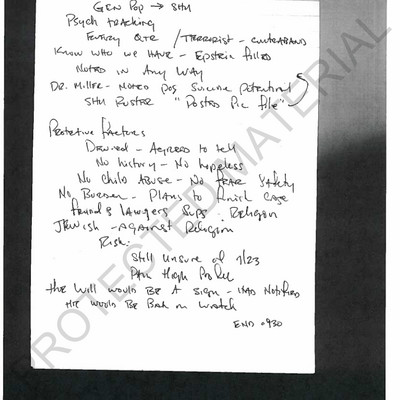 GEN POP → SHU
Psych tracking
/ TERRORIST - CONTRABAND
KNOW WHO WE HAVE - Epstein
NOTED IN ANY WAY
DR. Miller - NOTED POS Suicide Potential
SHU ROSTER " POSTED Pic file"
Protective factors
Denied - AGREED to tell
No history - No hopeless
No Child ABUSE - No FEAR SAFETY
No BURDEN - PLANS to finish CASE
friends & LAWYERS Sups. Religion
JEWISH - AGAINST Religion
Risk:
Still UNSURE of 7/23
High Profile
The Will would BE A Sign - HAD Notified
HE WOULD BE BACK ON WATCH
END 0930
PROTECTED MATERIAL